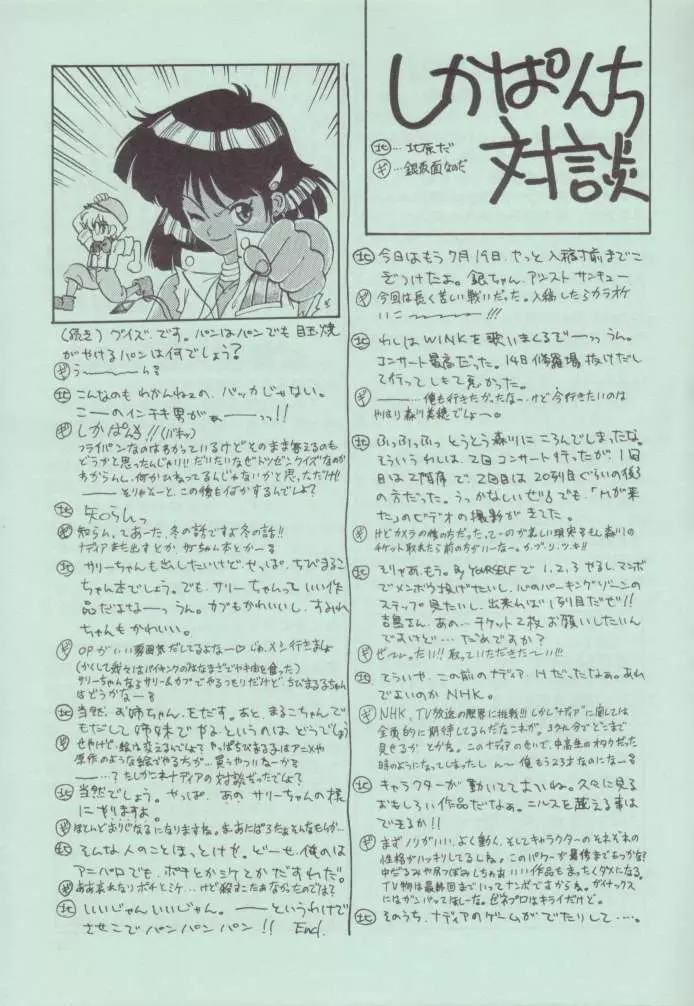 しかぱんち
対談
北…北原だ
ギ…銀仮面なのだ
北 今日はもう7月19日、やっと入稿寸前までこ
ぎつけたよ。銀ちゃん、アシストサンキュー
ギ 今回は長く苦しい戦いだった。入稿したらカラオケ
いこーーー!!!
北 わしはWINKを歌いまくるでーーっっうん。
コンサート最高だった。14日修羅場抜けだし
て行ってしもて良かった。
ギ ーーー…俺も行きたかったな〜、けど今行きたいのは
やはり森川美穂でしょ〜。
北 ふっふっふっとうとう森川にころんでしまったな。
そういうわしは、2回コンサート行ったが、1回
目は2階席で、2回目は20列目ぐらいの後3
の方だった。うっかなしいぜ!! でも、「Mが来
た」のビデオの撮影がきてた。
ギ けどカメラの後の方だった、てーのが悲しい現実ですもん 森川の
チケット取れたら前の方がいーなー。カ・ブ・リ・ツ・キ!!
北 そりゃあ、もう。By YOURSELFで1,2,3やるし、マンボ
でメンボウ投げたいし、心のパーキングゾーンの
ステップ見たいし、出来れば1列目だぜ!!
吉島さん、あの…チケット2枚お願いしたいん
ですけど…だめですか?
ギ ぜーったい!!取っていただきたーい!!
北 そういや、この前のナディア、Hだったなぁ。あれ
でよいのかNHK。
ギ NHK、TV放送の限界に挑戦!!しかし「ナディア」に関しては
全面的に期待してるんだなこれが。39分でどこまで
見せるか とかね。このナディアのせいで、中高生のオタクだった
時のようになってしまったし ん〜 俺もう23才なのになーる
北 キャラクターが動いててよいね。久々に見る
おもしろい作品だなぁ。ニルスを越える事は
できるか!!
ギ まずノリがいい、よく動く、そしてキャラクターのそれぞれの
性格がハッキリしてるしね。このパワーが最後まであっかな?
中だるみや尻つぼみしちゃあ いい作品もまったくダメになる。
TV物は最終回までいってナンボですからね。ガイナックス
にはガンバってほしーな。ゼネプロはキライだけど。
北 そのうち、ナディアのゲームがでたりして…。
(続き)クイズです。パンはパンでも目玉焼
がやけるパンは何でしょう?
ギ う〜ーーーんる
北 こんなのもわかんねェの、バッカじゃない。
こーのインチキ男がぁーーっっ!!
ギ しかぱんち!!(バキッ)
フライパンなのはわかっているけどそのまま答えるのも
どうかと思ったんじゃい!!だいたいなぜトツゼンクイズなのか
わからんし、何かひねってるんじゃないかと思っただけ!!
ーーーそりゃそーと、この後も何かするんでしょ?
北 知らんっ
ギ 知らん、てあーた、冬の話ですよ冬の話!!
ナディアまた出すとか、サリーちゃん本とかーる
北 サリーちゃんも出したいけど、やっぱ、ちびまるこ
ちゃん本でしょう。でも、サリーちゃんっていい作
品だよなーっっうん。カブもかわいいし、すみれ
ちゃんもかわいい。
ギ OPがいい雰囲気だしてるよなー♡ じゃ、メシ行きましょ
(かくして我々はバイキングのみなまざでヤキ肉を食った)
サリーちゃんならサリー&カブでやるつもりだけど、ちびまる子ちゃん
はどうかなーる
北 当然、お姉ちゃん、をだす。あと、まるこちゃんで
もだして姉妹でやる、というのはどうでしょう
ギ せやけど、絵は変えるんでしょ?やっぱちびまる子はアニメや
原作のような絵でやる方が…買うやついな〜か
ーーー…?たしかこれナディアの対談だったでしょ?
北 当然でしょう。やっぱ、あのサリーちゃんの様
にやりますよ。
ギ ほとんどおりじなるになりますね。ま、あにぱろだぁそんなもんか…
北 そんな人のことほっとけゃ。どーせ、俺のは
アニパロでも、ポチとかミケとかだすわだ。
ギ ああ哀れなりポチとミケ…けど殺すこたぁなかったのでは?
北 いいじゃんいいじゃん。ーーーというわけで
させこでパンパンパン!! End.